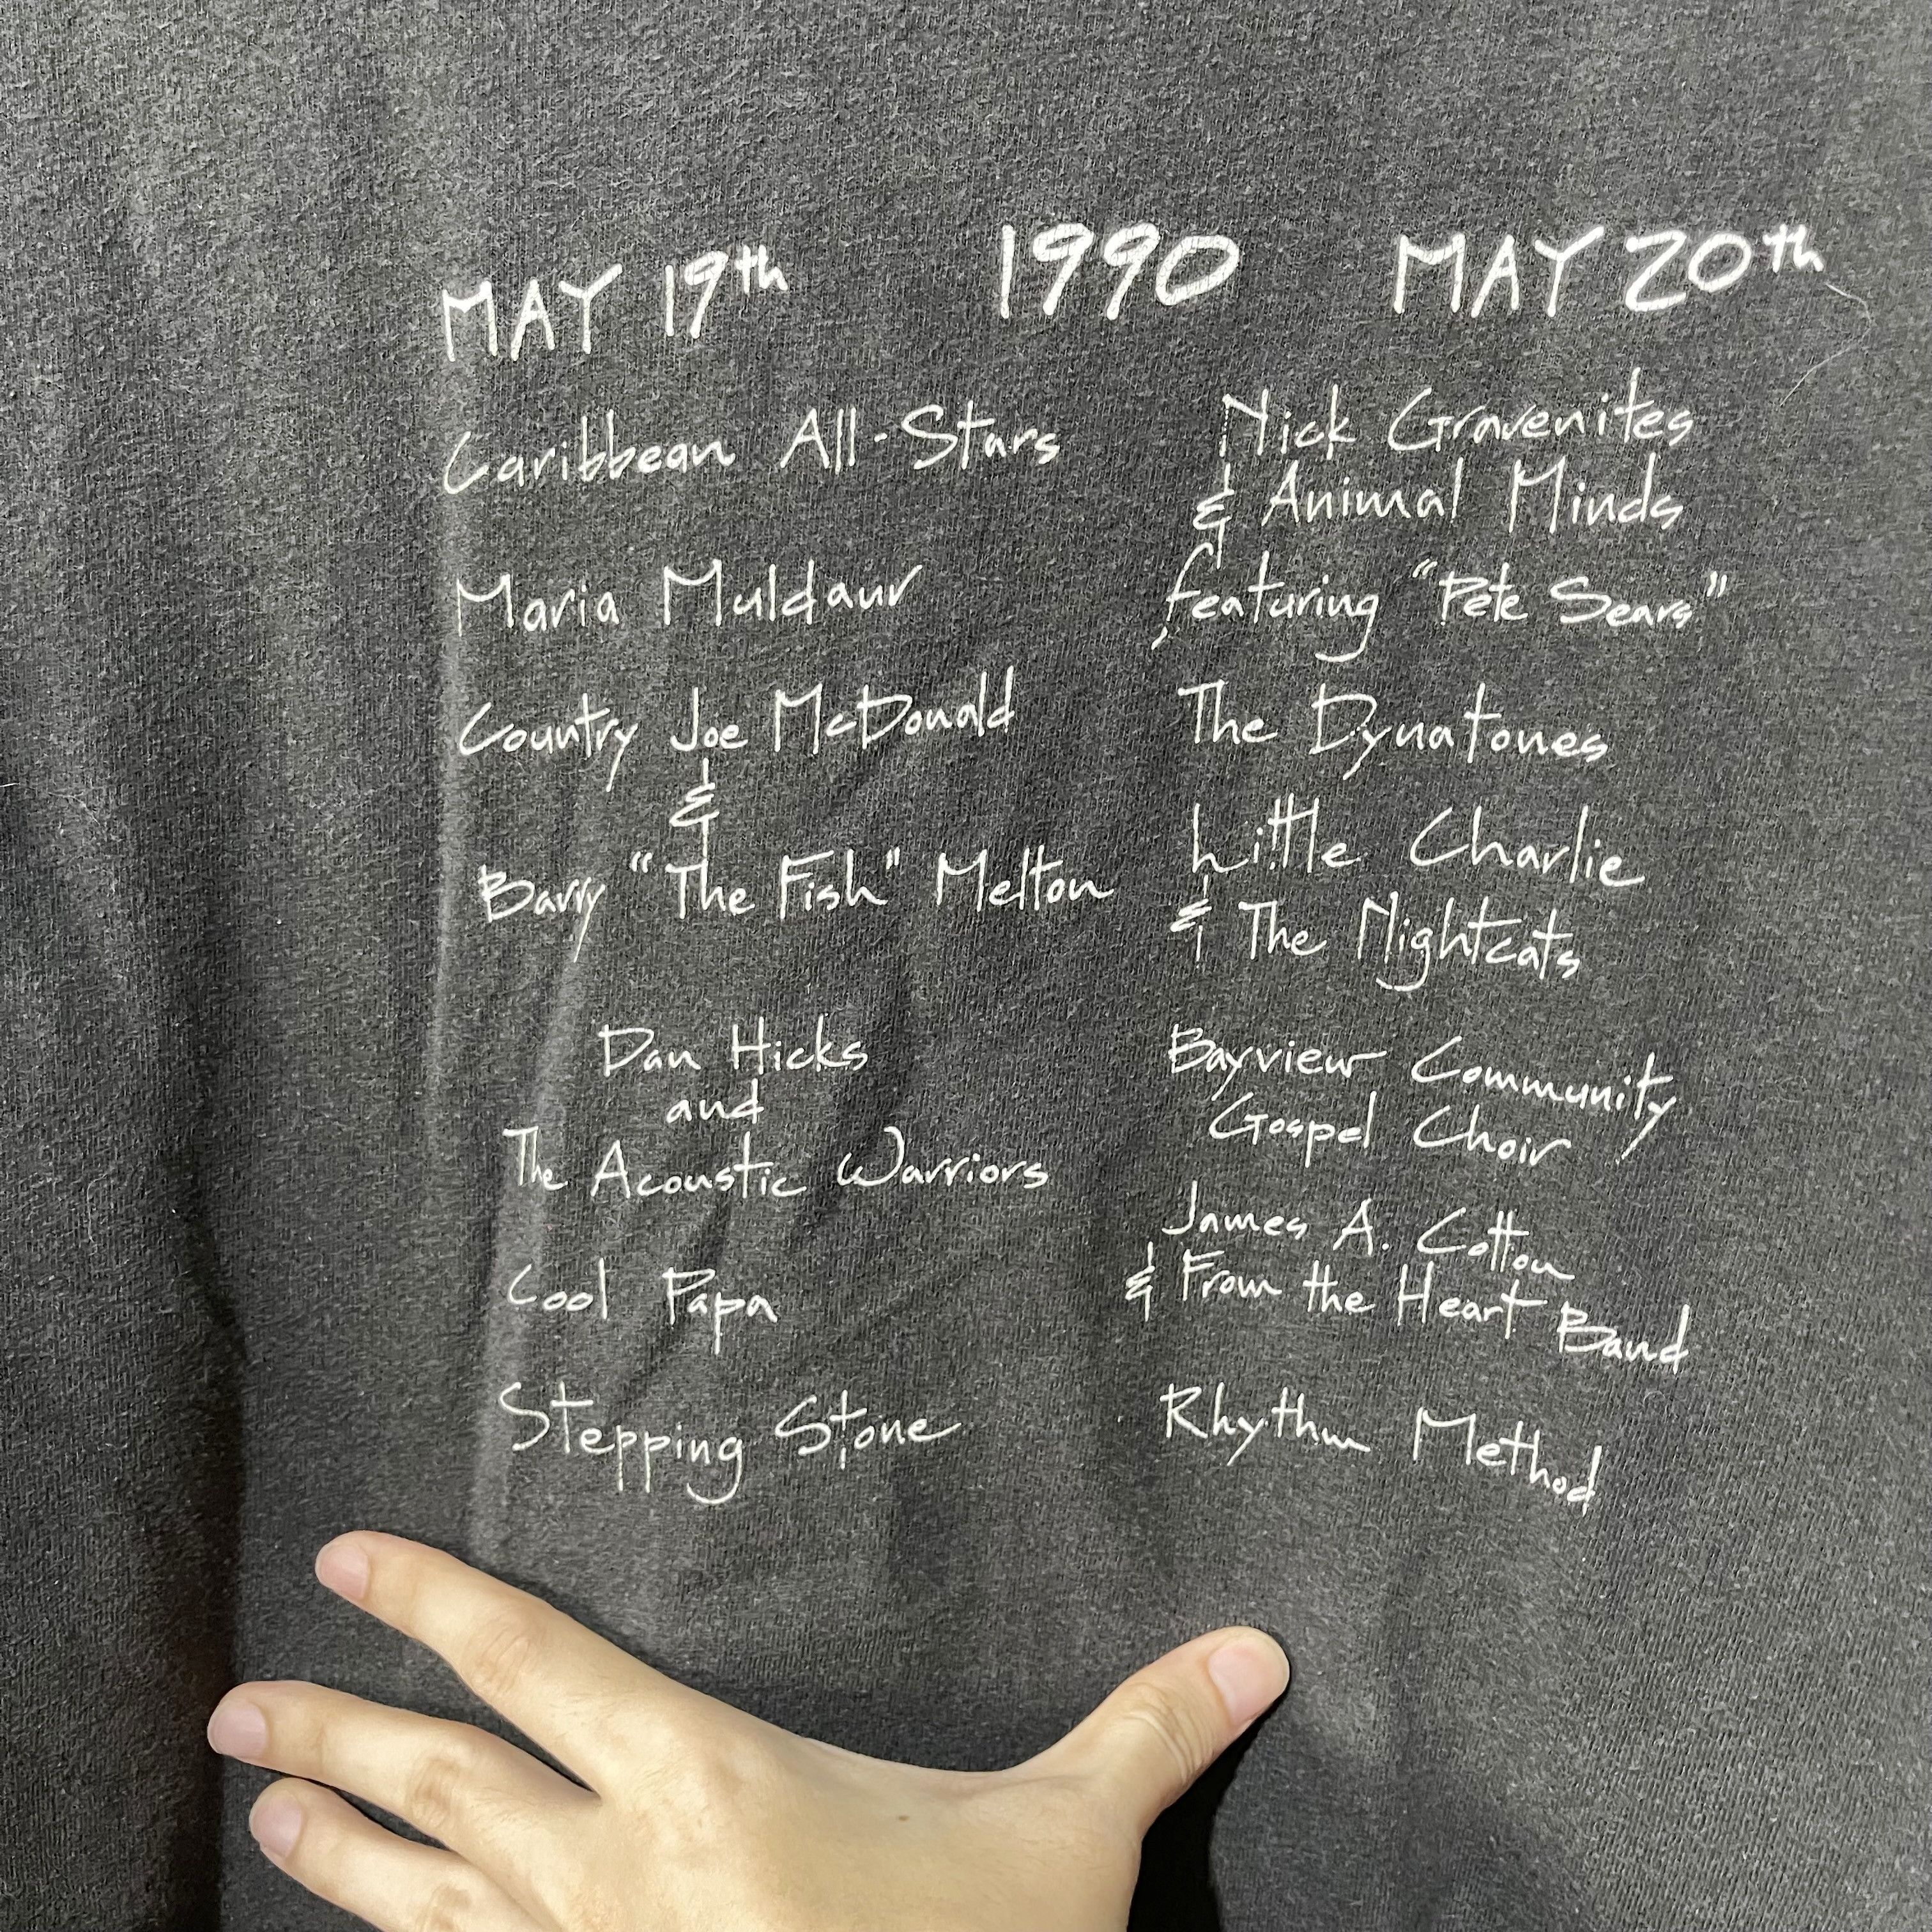 MAY 19th 1990 MAY 20th
Caribbean All-Stars
Maria Muldaur
Country Joe McDonald
&
Barry "The Fish" Melton
Dan Hicks
and
The Acoustic Warriors
Cool Papa
Stepping Stone
Nick Gravenites
& Animal Minds
featuring "Pete Sears"
The Dynatones
Little Charlie
& The Nightcats
Bayview Community
Gospel Choir
James A. Cotton
& From the Heart Band
Rhythm Method